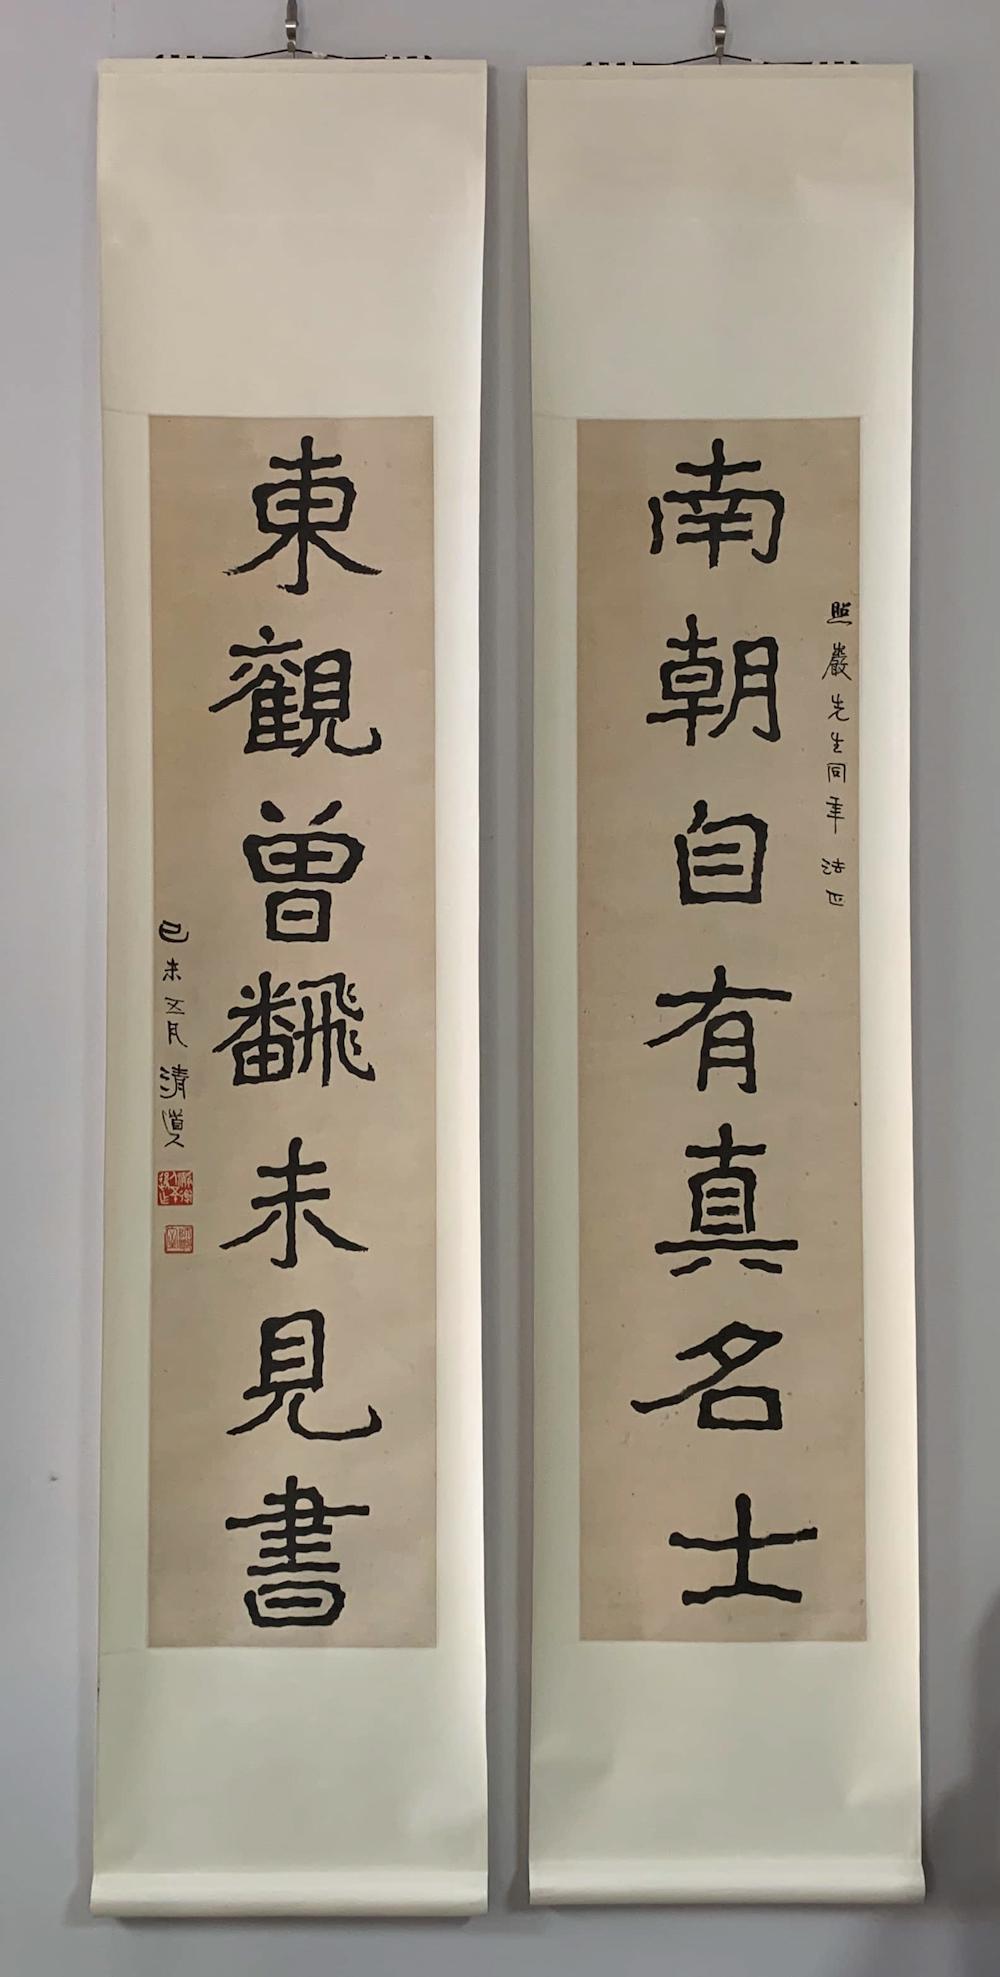 照巖先生同年 法正
南朝自有真名士
東觀曾飜未見書
己未五月 清道人